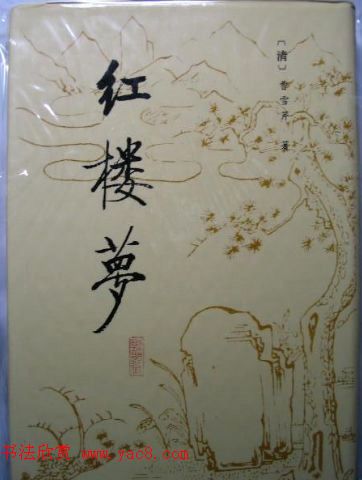 红楼梦
〔清〕曹雪芹 著
书法欣赏 www.yac8.com